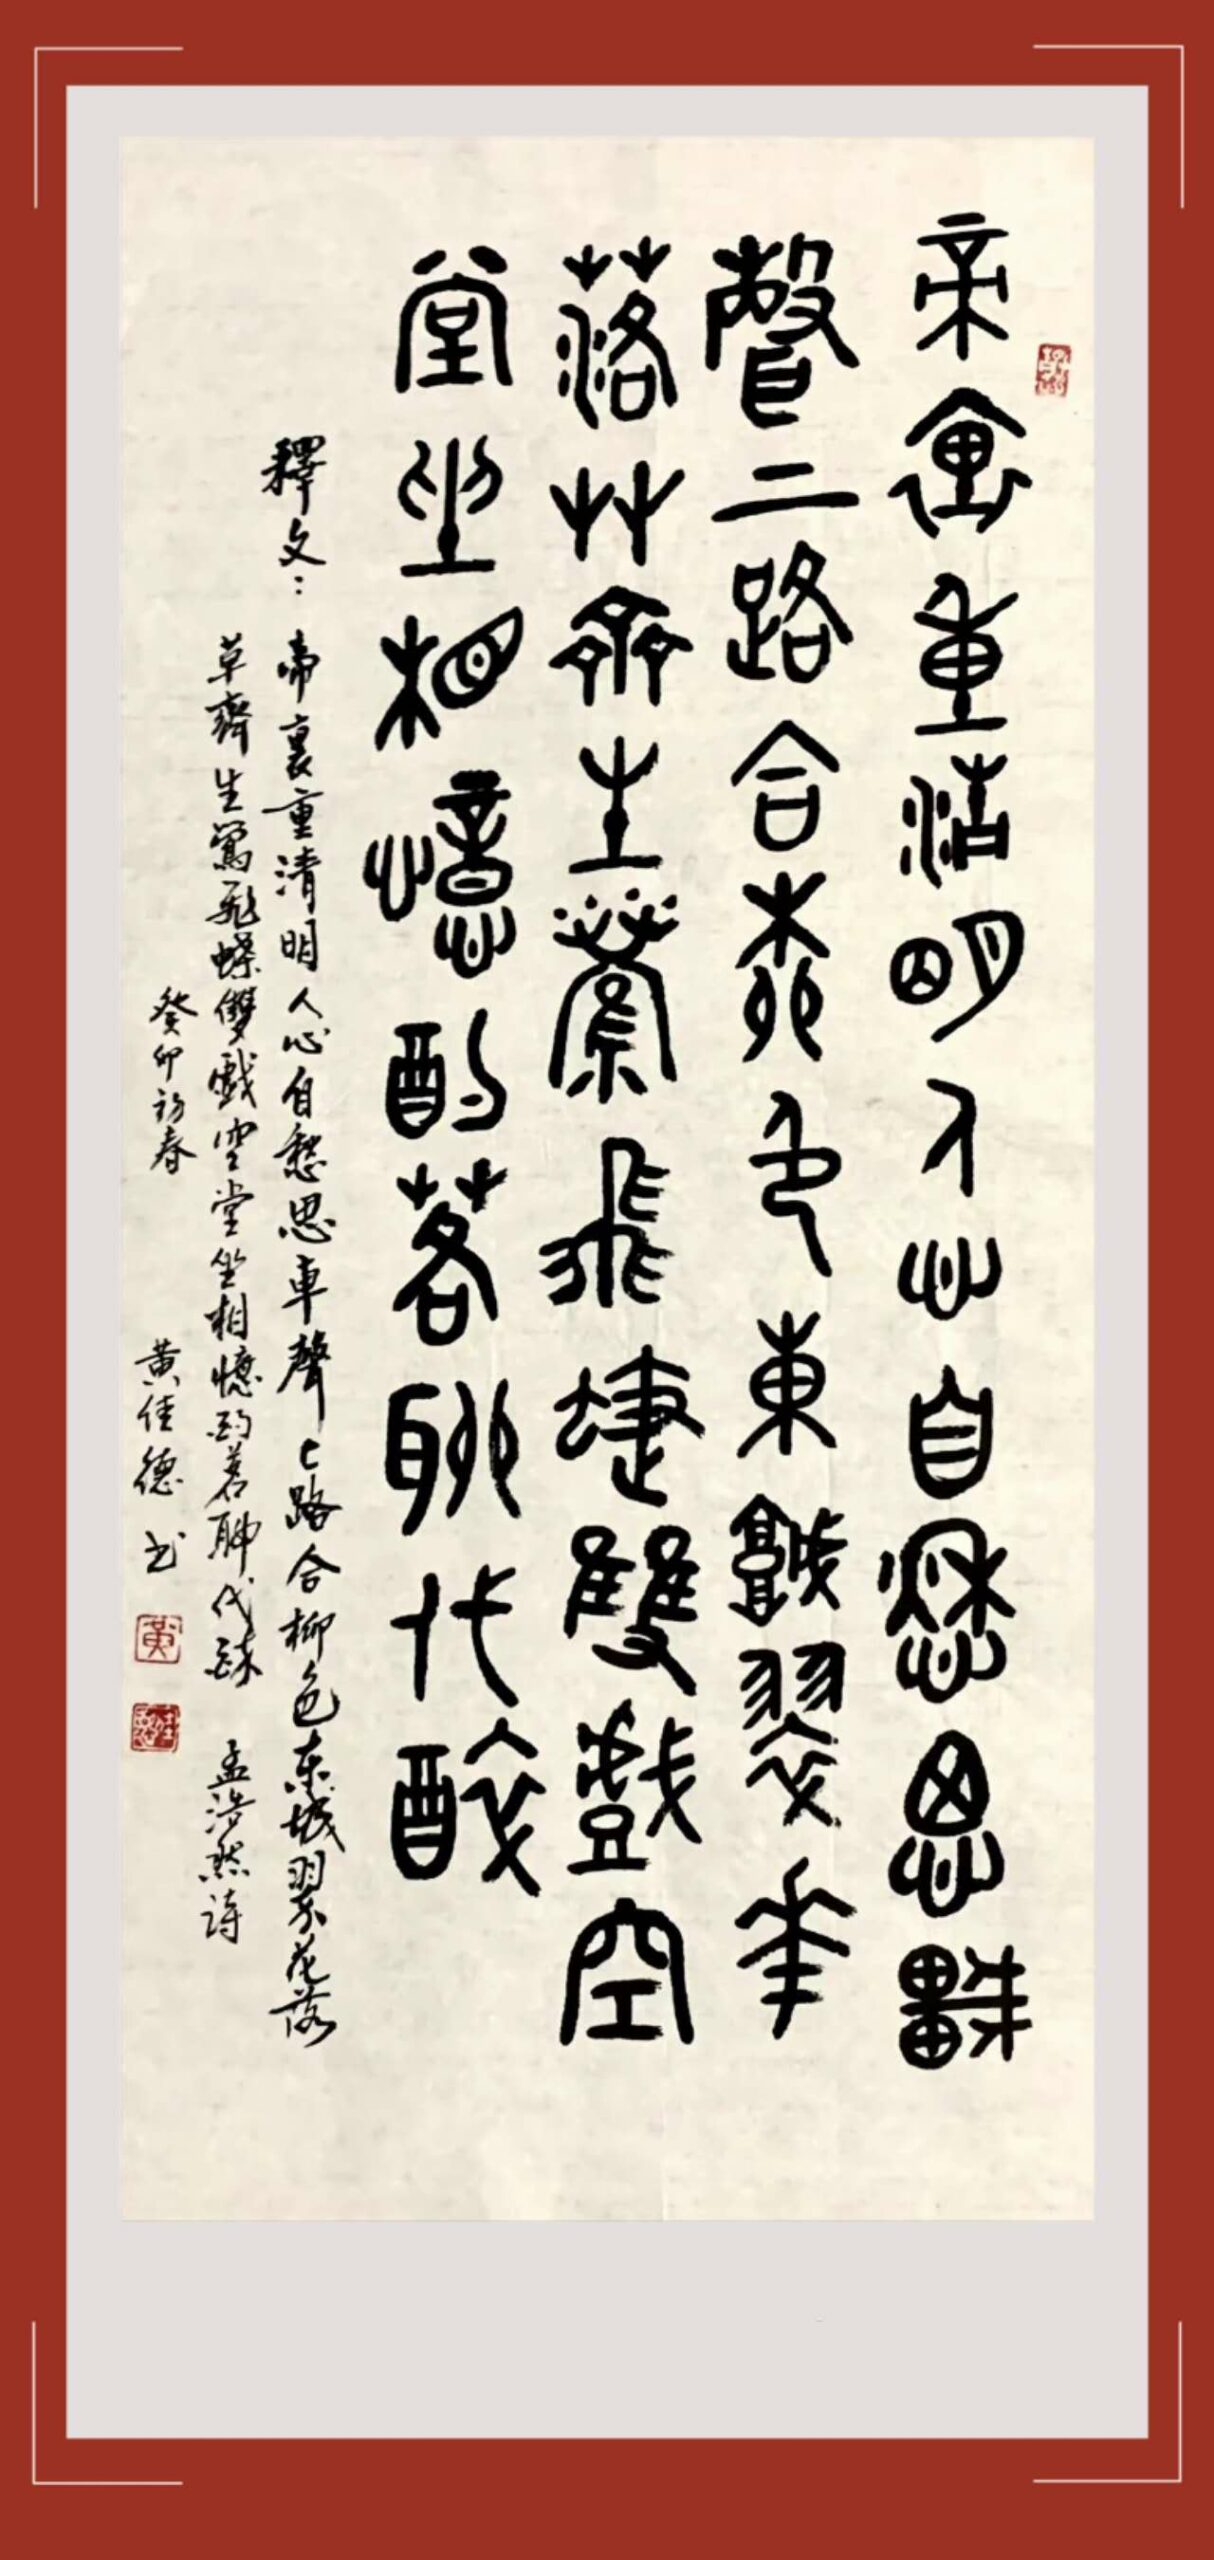 帝里重清明人心自愁思車
聲二路合柳色東城翠花
落草齊生鶯飛蝶雙戲空
堂坐相憶酌茗聊代醉
釋文：帝裏重清明人心自愁思車聲々路合柳色東城翠花落
草齊生鶯飛蝶雙戲空堂坐相憶酌茗聊代醉 孟浩然詩
癸卯初春
黃佳德书
黃